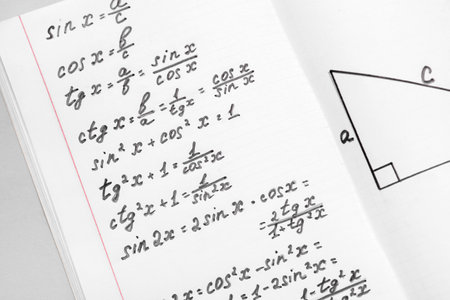 sin x = a/c
cos x = b/c
tg x = a/b = sin x/cos x
ctg x = b/a = 1/tg x = cos x/sin x
sin² x + cos² x = 1
tg² x + 1 = 1/cos² x
ctg² x + 1 = 1/sin² x
sin 2x = 2 sin x · cos x =
= 2 tg x/1 + tg² x
= cos² x - sin² x =
= 1 - 2 sin² x =
1 - tg² x
c
a